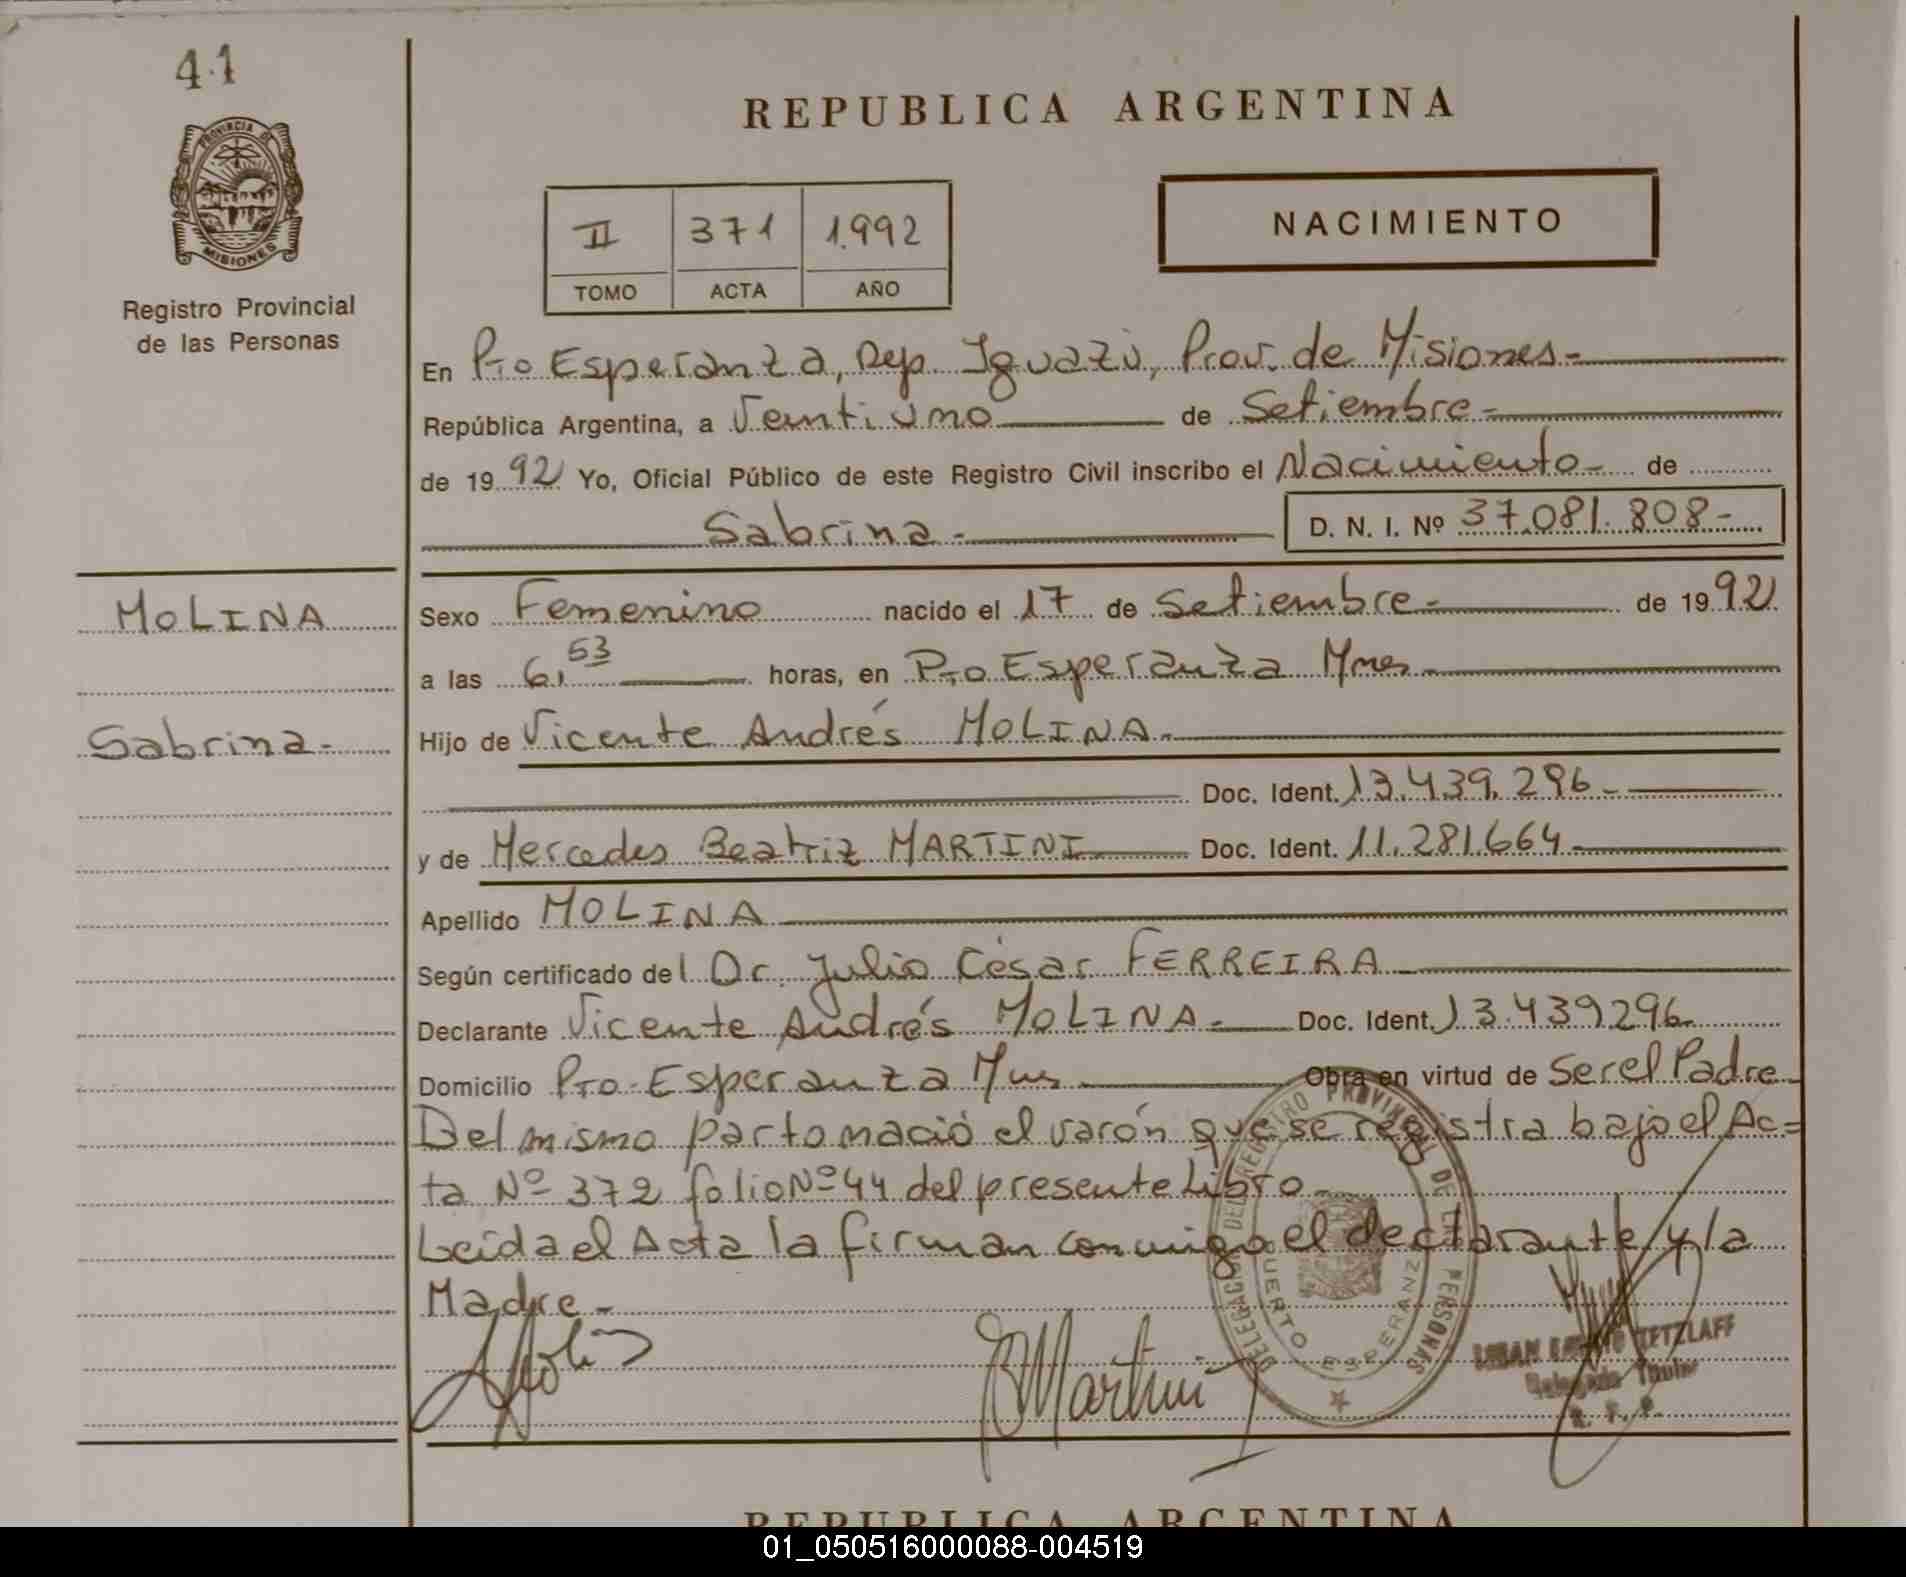 41
REPUBLICA ARGENTINA
PROVINCIA DE
MISIONES
Registro Provincial
de las Personas
II 371 1.992
TOMO ACTA AÑO
NACIMIENTO
En Pto Esperanza, Dep. Iguazú, Prov. de Misiones.-
República Argentina, a Veintiuno de Setiembre.-
de 1992 Yo, Oficial Público de este Registro Civil inscribo el Nacimiento- de
Sabrina.- D. N. I. Nº 37.081.808-
MOLINA
Sexo Femenino nacido el 17 de Setiembre.- de 1992
a las 6,53 horas, en Pto Esperanza Mnes.-
Sabrina.-
Hijo de Vicente Andrés MOLINA.-
Doc. Ident. 13.439.296.-
y de Mercedes Beatriz MARTINI Doc. Ident. 11.281.664.-
Apellido MOLINA
Según certificado del Dr. Julio César FERREIRA
Declarante Vicente Andrés MOLINA.- Doc. Ident. 13.439296.
Domicilio Pto. Esperanza Mns Obra en virtud de Ser el Padre-
Del mismo parto nació el varón que se registra bajo el Ac=
ta Nº 372 folio Nº 44 del presente Libro.-
Leida el Acta la firman conmigo el declarante y la
Madre.-
Martini
DELEGACION DEL REGISTRO PROVINCIAL DE LAS PERSONAS
PUERTO ESPERANZA
TETZLAFF
Delegado Titular
R. P. P.
REPUBLICA ARGENTINA
01_050516000088-004519